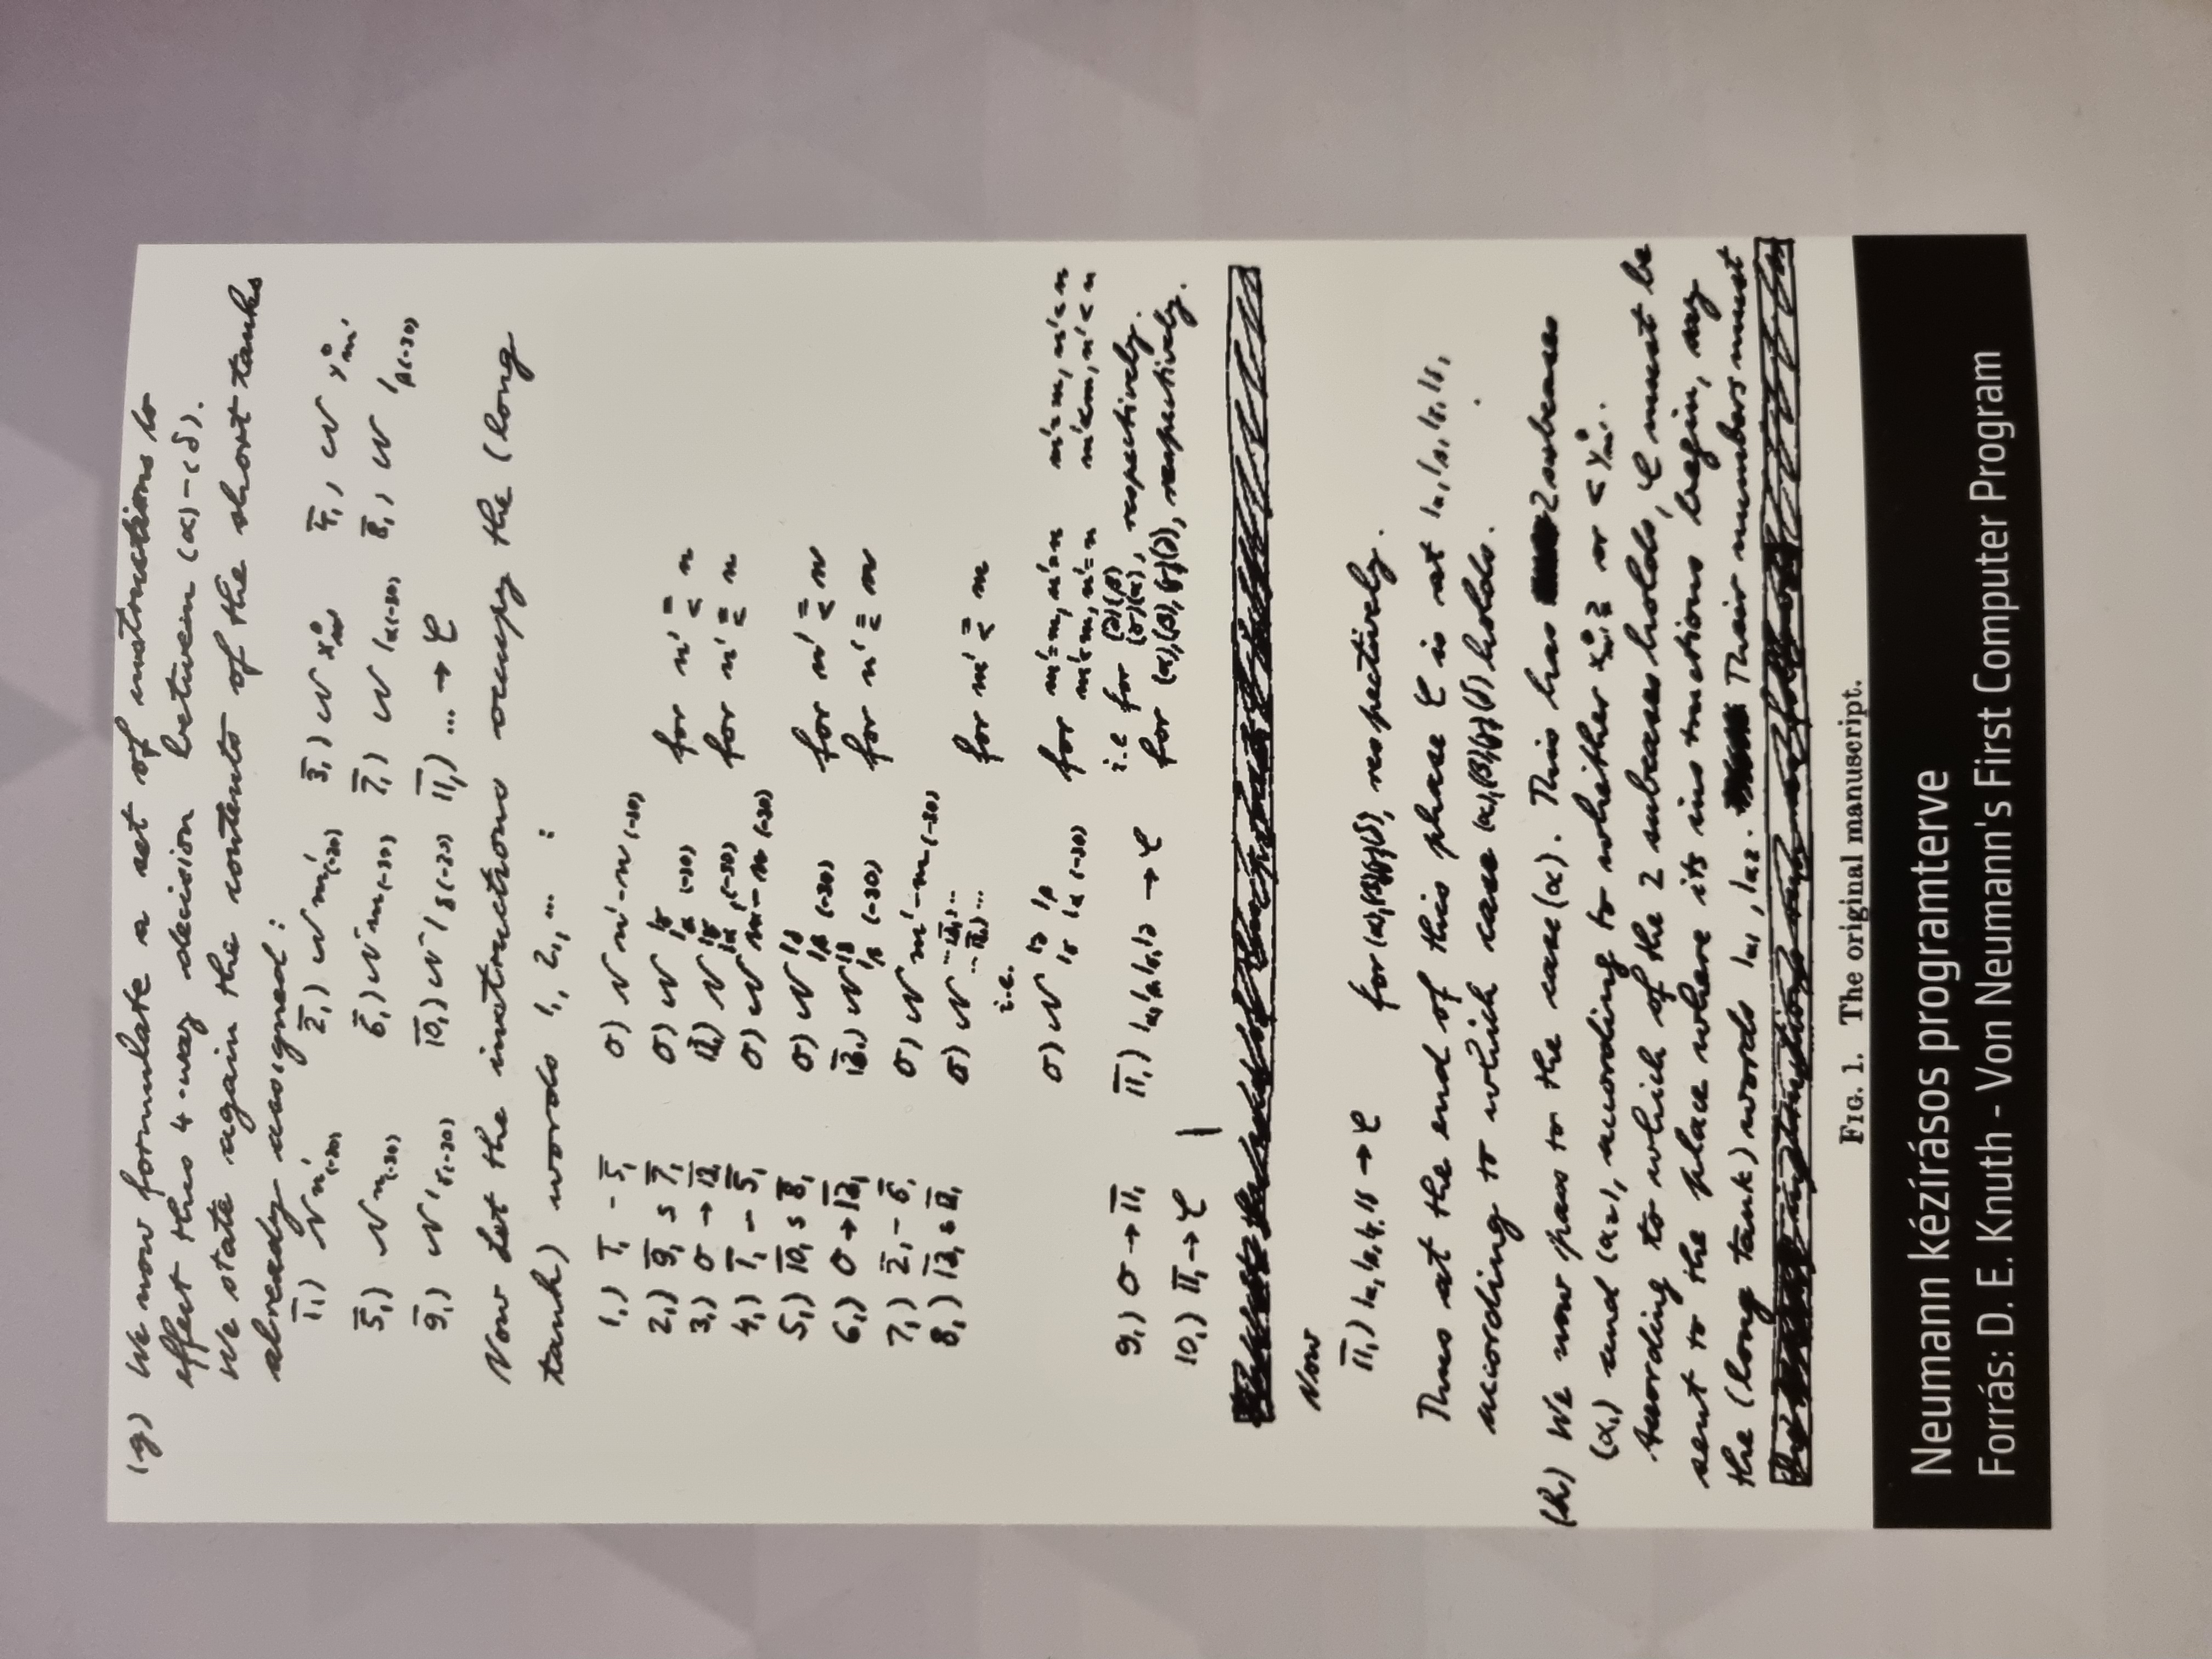 (g) We now formulate a set of instructions to
effect this 4-way decision between (α)-(δ).
We state again the contents of the short tanks
already assigned:
1̄₁) N n'(-30) 2̄₁) N m'(-30) 3̄₁) W x°m' 4̄₁) W y°m'
5̄₁) N n(-30) 6̄₁) N m(-30) 7̄₁) N 1α(-30) 8̄₁) N 1β(-30)
9̄₁) N 1γ(-30) 10̄₁) N 1δ(-30) 11̄₁) ... → C
Now let the instructions occupy the (long
tank) words 1₁, 2₁, ... :
1₁) 1̄₁ - 5̄₁ O) N n'-n(-30)
2₁) 9̄₁ s 7̄₁ O) N 1γ 1α (-30) for n' < = n
3₁) O → 12̄₁ 12̄₁) N 1γ 1α (-30) for n' < = n
4₁) 1̄₁ - 5̄₁ O) N n'-n(-30)
5₁) 10̄₁ s 8̄₁ O) N 1δ 1β (-30) for n' < = n
6₁) O → 13̄₁ 13̄₁) N 1δ 1β (-30) for n' < = n
7₁) 2̄₁ - 6̄₁ O) N m'-m(-30)
8₁) 13̄₁ s 12̄₁ O) N ...13̄₁... ...12̄₁... for m' < = m
i.e.
O) N 1δ 1β 1γ 1α (-30) for m'=m, n'=n m'=m, n'<n
m'<m, n'=n m'<m, n'<n
i.e. for (δ)(β)
(γ)(α), respectively.
9₁) O → 11̄₁ 11̄₁) 1α,1β,1γ,1δ → C for (α),(β),(γ),(δ), respectively.
10₁) 11̄₁ → C
Now
11̄₁) 1α,1β,1γ,1δ → C for (α),(β),(γ),(δ), respectively.
Thus at the end of this phase C is at 1α,1β,1γ,1δ,
according to which case (α),(β),(γ),(δ) holds.
(h) We now pass to the case (α). This has 2 subcases
(α₁) and (α₂), according to whether x°m' ≥ or < y°m'.
According to which of the 2 subcases holds, C must be
sent to the place where its instructions begin, say
the (long tank) words 1α₁, 1α₂. Their numbers must
FIG. 1. The original manuscript.
Neumann kézírásos programterve
Forrás: D. E. Knuth - Von Neumann's First Computer Program